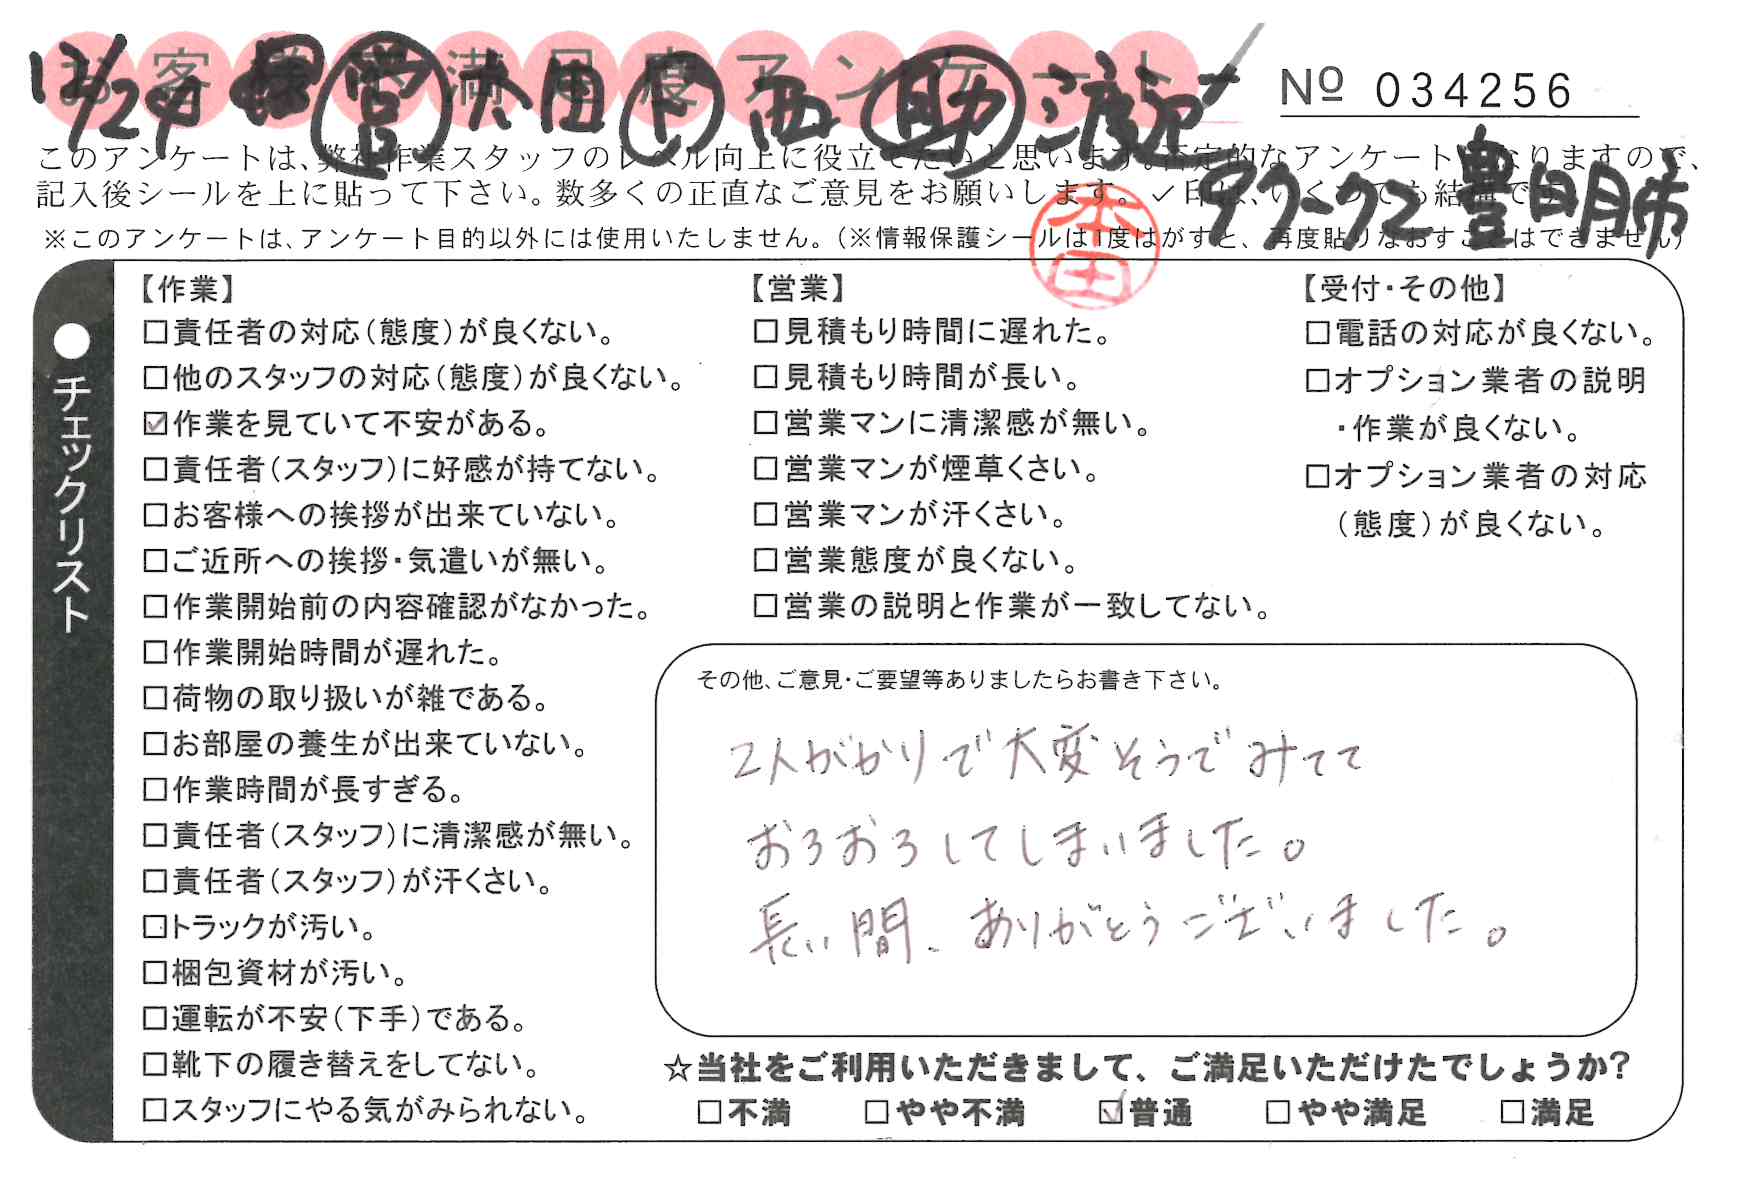 お客様の満足度アンケート
12/24 営 太田 ト 西 助 渡辺ナ
Nº 034256
9ワ-72 豊明市
このアンケートは、弊社作業スタッフのレベル向上に役立てたいと思います。否定的なアンケートになりますので、
記入後シールを上に貼って下さい。数多くの正直なご意見をお願いします。✓印は、いくつでも結構です。
※このアンケートは、アンケート目的以外には使用いたしません。(※情報保護シールは1度はがすと、再度貼りなおすことはできません)
本田
●チェックリスト
【作業】
□責任者の対応(態度)が良くない。
□他のスタッフの対応(態度)が良くない。
☑作業を見ていて不安がある。
□責任者(スタッフ)に好感が持てない。
□お客様への挨拶が出来ていない。
□ご近所への挨拶・気遣いが無い。
□作業開始前の内容確認がなかった。
□作業開始時間が遅れた。
□荷物の取り扱いが雑である。
□お部屋の養生が出来ていない。
□作業時間が長すぎる。
□責任者(スタッフ)に清潔感が無い。
□責任者(スタッフ)が汗くさい。
□トラックが汚い。
□梱包資材が汚い。
□運転が不安(下手)である。
□靴下の履き替えをしてない。
□スタッフにやる気がみられない。
【営業】
□見積もり時間に遅れた。
□見積もり時間が長い。
□営業マンに清潔感が無い。
□営業マンが煙草くさい。
□営業マンが汗くさい。
□営業態度が良くない。
□営業の説明と作業が一致してない。
【受付・その他】
□電話の対応が良くない。
□オプション業者の説明
・作業が良くない。
□オプション業者の対応
(態度)が良くない。
その他、ご意見・ご要望等ありましたらお書き下さい。
2人がかりで大変そうでみてて
おろおろしてしまいました。
長い間、ありがとうございました。
☆当社をご利用いただきまして、ご満足いただけたでしょうか?
□不満 □やや不満 ☑普通 □やや満足 □満足